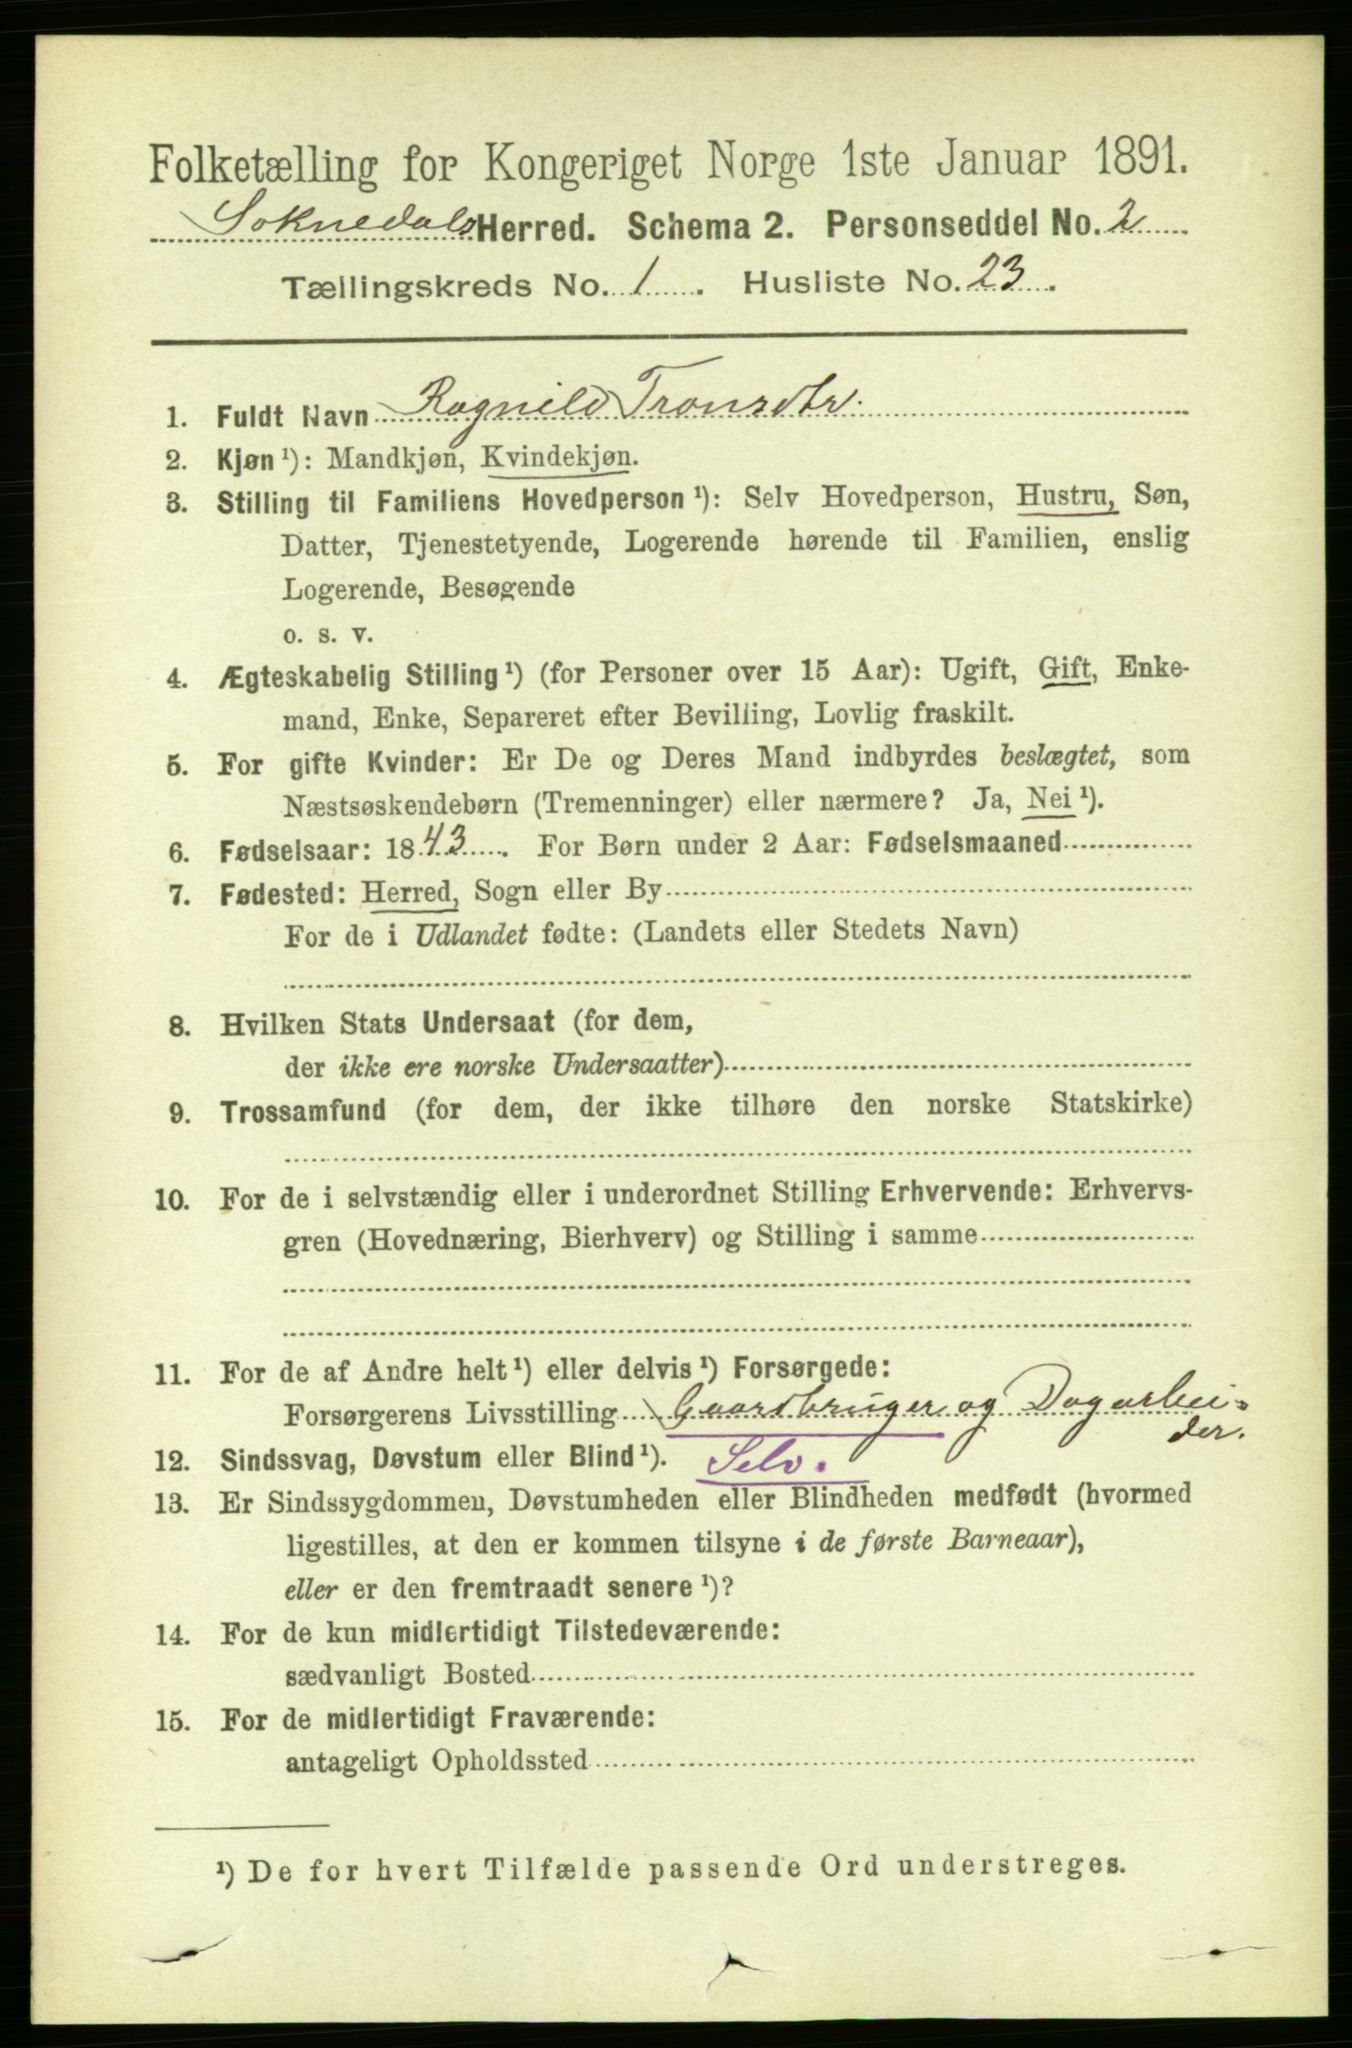 Folketælling for Kongeriget Norge 1ste Januar 1891.
Soknedals Herred. Schema 2. Personseddel No. 2
Tællingskreds No. 1. Husliste No. 23.
1. Fuldt Navn Ragnild Tronsdtr.
2. Kjøn ¹): Mandkjøn, Kvindekjøn.
3. Stilling til Familiens Hovedperson ¹): Selv Hovedperson, Hustru, Søn,
Datter, Tjenestetyende, Logerende hørende til Familien, enslig
Logerende, Besøgende
o. s. v.
4. Ægteskabelig Stilling ¹) (for Personer over 15 Aar): Ugift, Gift, Enke-
mand, Enke, Separeret efter Bevilling, Lovlig fraskilt.
5. For gifte Kvinder: Er De og Deres Mand indbyrdes beslægtet, som
Næstsøskendebørn (Tremenninger) eller nærmere? Ja, Nei ¹).
6. Fødselsaar: 1843. For Børn under 2 Aar: Fødselsmaaned
7. Fødested: Herred, Sogn eller By
For de i Udlandet fødte: (Landets eller Stedets Navn)
8. Hvilken Stats Undersaat (for dem,
der ikke ere norske Undersaatter)
9. Trossamfund (for dem, der ikke tilhøre den norske Statskirke)
10. For de i selvstændig eller i underordnet Stilling Erhvervende: Erhvervs-
gren (Hovednæring, Bierhverv) og Stilling i samme
11. For de af Andre helt ¹) eller delvis ¹) Forsørgede:
Forsørgerens Livsstilling Gaardbruger og Dagarbei-
der.
12. Sindssvag, Døvstum eller Blind ¹). Selv.
13. Er Sindssygdommen, Døvstumheden eller Blindheden medfødt (hvormed
ligestilles, at den er kommen tilsyne i de første Barneaar),
eller er den fremtraadt senere ¹)?
14. For de kun midlertidigt Tilstedeværende:
sædvanligt Bosted
15. For de midlertidigt Fraværende:
antageligt Opholdssted
¹) De for hvert Tilfælde passende Ord understreges.